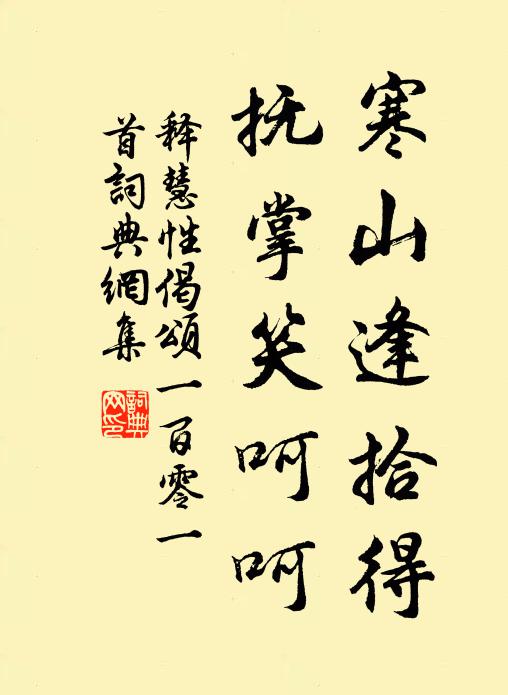 寒山逢拾得
抚掌笑呵呵
释慧性偈颂一百零一
首词典網集
詞典網印